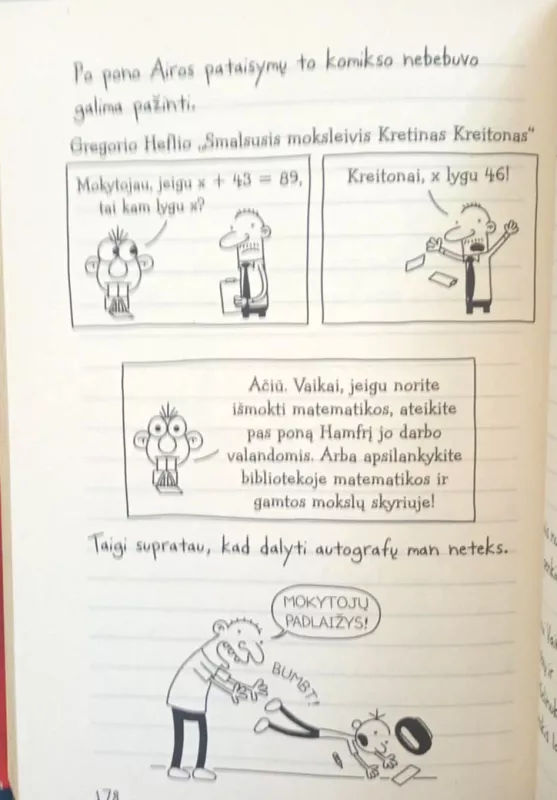 Po pono Airos pataisymų to komikso nebebuvo
galima pažinti.
Gregorio Heflio „Smalsusis moksleivis Kretinas Kreitonas“
Mokytojau, jeigu x + 43 = 89,
tai kam lygu x?
Kreitonai, x lygu 46!
Ačiū. Vaikai, jeigu norite
išmokti matematikos, ateikite
pas poną Hamfrį jo darbo
valandomis. Arba apsilankykite
bibliotekoje matematikos ir
gamtos mokslų skyriuje!
Taigi supratau, kad dalyti autografų man neteks.
MOKYTOJŲ
PADLAIŽYS!
BUMBT!
178